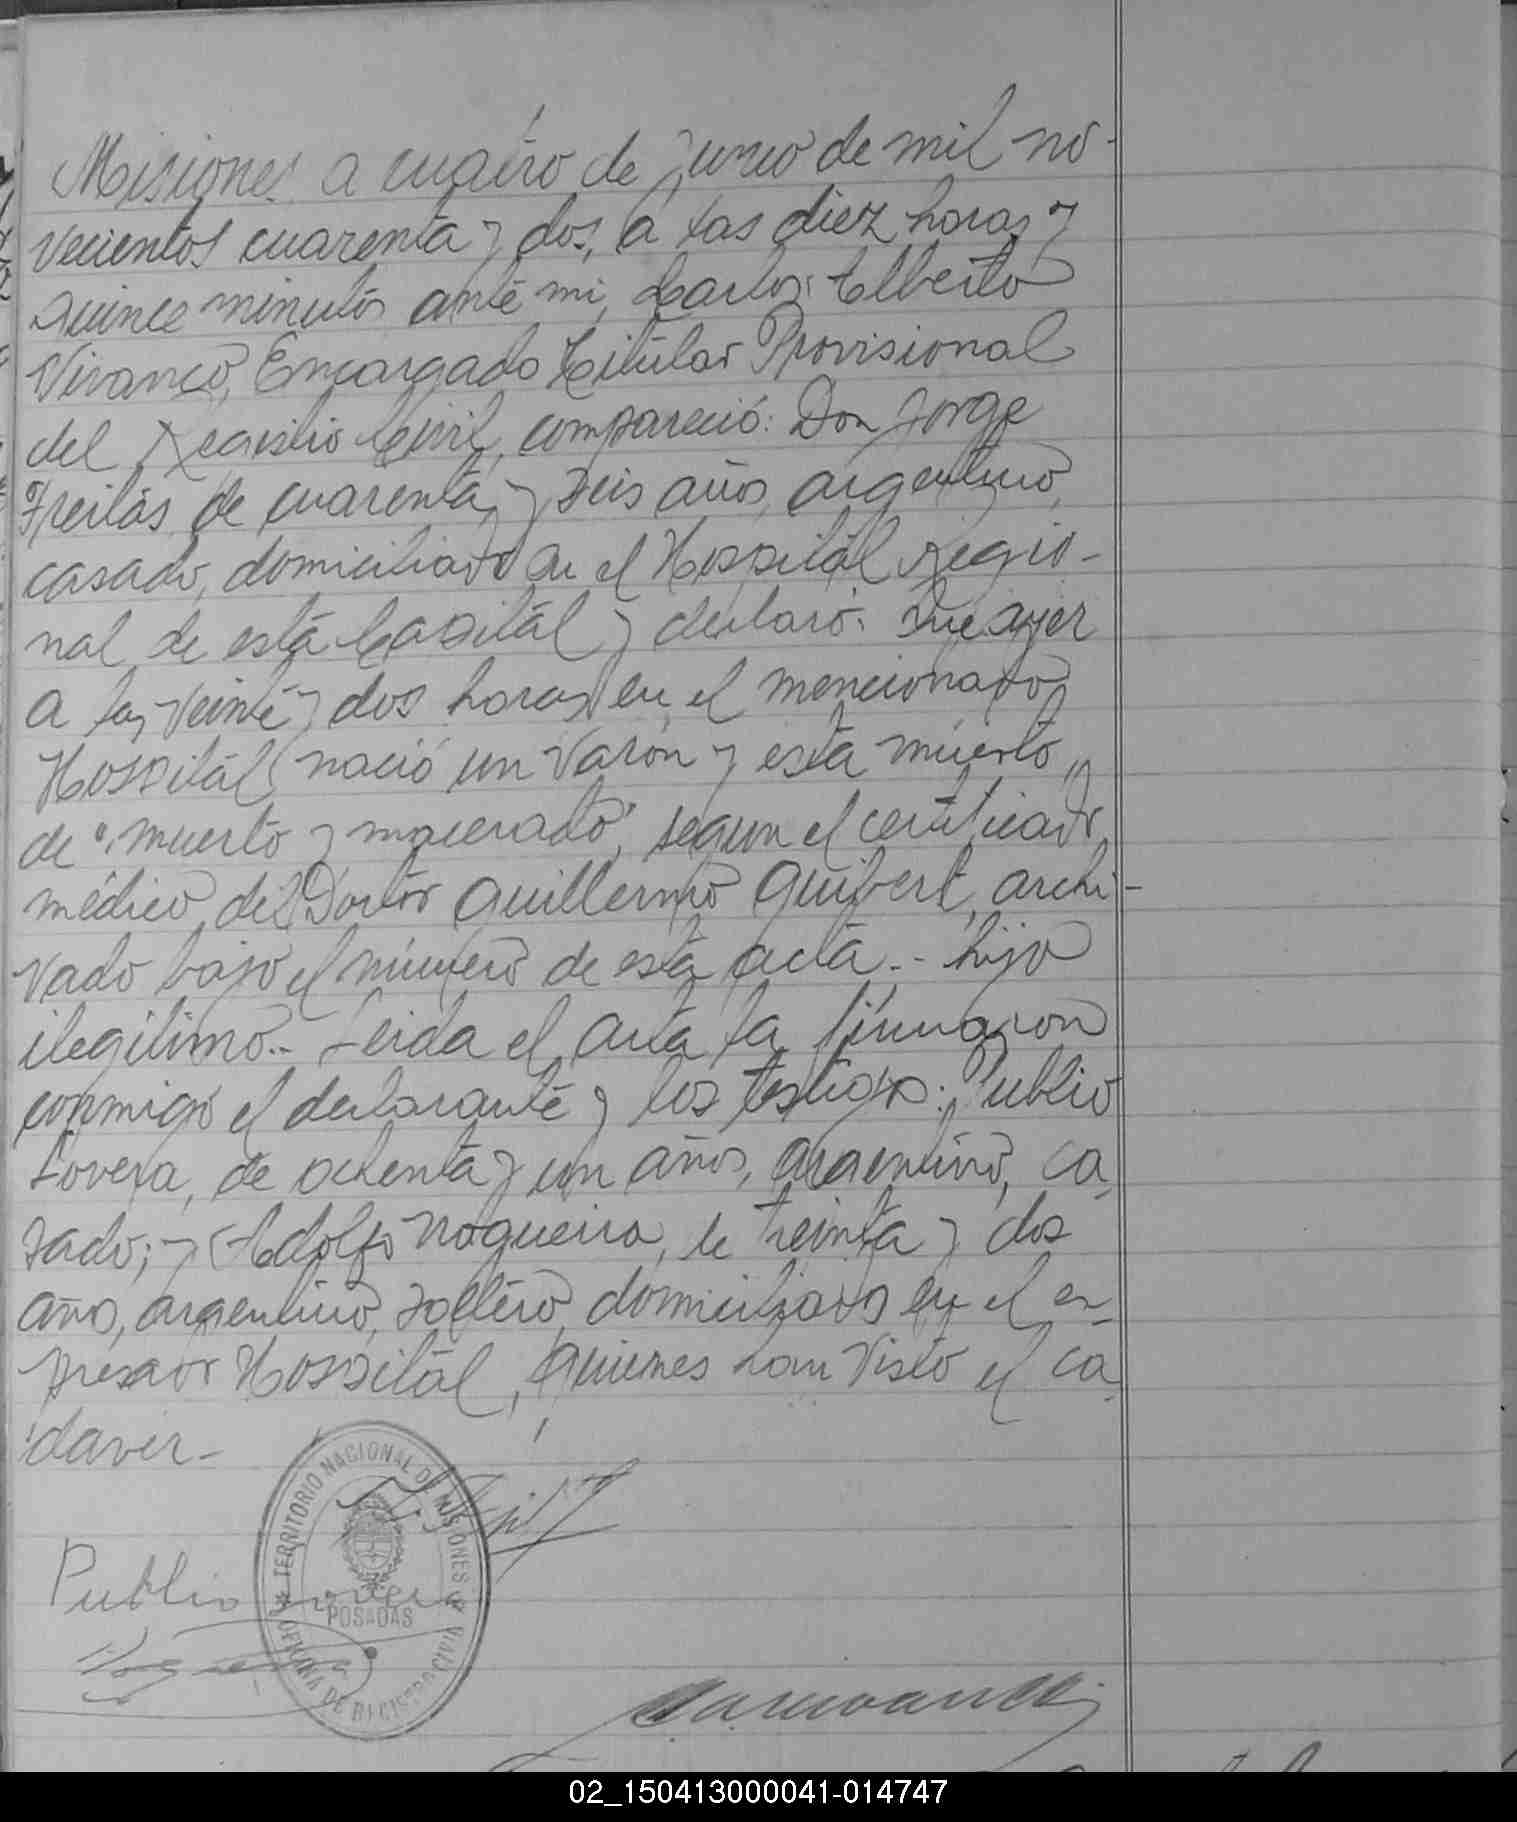 Misiones a cuatro de Junio de mil no-
vecientos cuarenta y dos, a las diez horas y
quince minutos ante mi, Carlos Alberto
Vivanco, Encargado Titular Provisional
del Registro Civil, compareció: Don Jorge
Freitas de cuarenta y seis años, argentino,
casado, domiciliado en el Hospital Regio-
nal de esta Capital y declaró: Que ayer
a las veinte y dos horas en el mencionado
Hospital nació un varón y está muerto
de "muerto y macerado", segun el certificado
médico del Doctor Guillermo Guibert, archi-
vado bajo el número de esta acta.- hijo
ilegitimo.- Leida el acta la firmaron
conmigo el declarante y los testigos: Publio
Lovera, de ochenta y un años, argentino, ca
sado; y Adolfo Nogueira, de treinta y dos
años, argentino, soltero, domiciliado en el ex-
presado Hospital, quienes han visto el ca
daver-
TERRITORIO NACIONAL DE MISIONES
POSADAS
OFICINA DE REGISTRO CIVIL
Publio Lovera
02_150413000041-014747